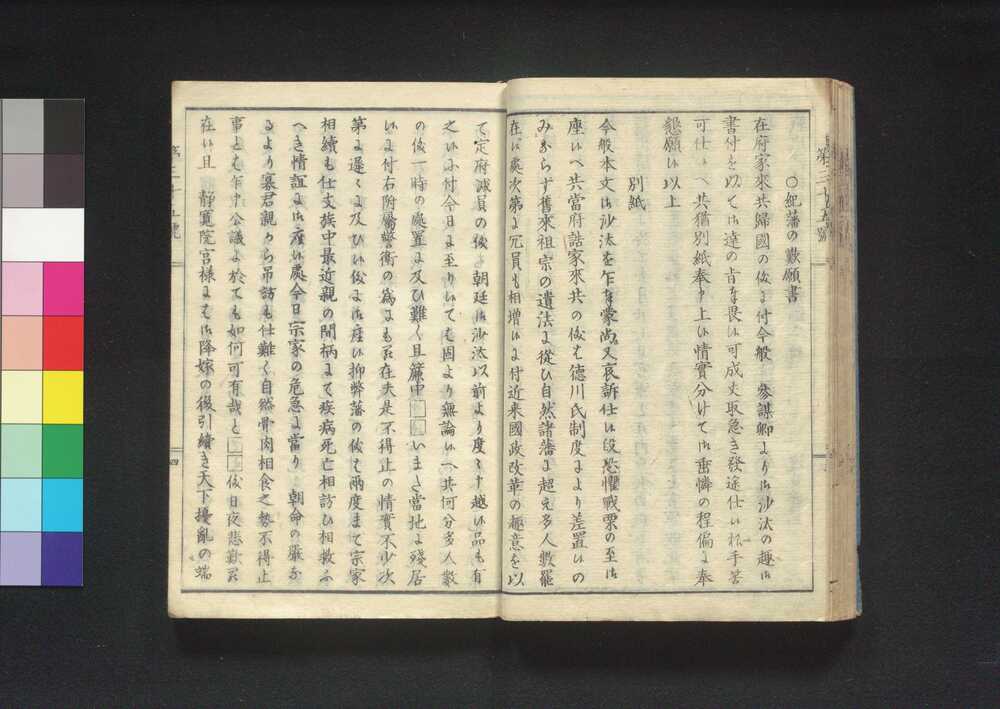 第三十五號
〇紀藩の歎願書
在府家來共歸國の儀ニ付今般 參謀卿より御沙汰の趣御
書付を以て御達の旨奉畏候可成丈取急き發途仕候樣手筈
可仕候へ共猶別紙奉申上候情實分けて御垂憐の程偏ニ奉
懇願候以上
別紙
今般本文御沙汰を乍蒙尚又哀訴仕候段恐懼戰栗の至御
座候へ共當府詰家來共の儀も德川氏制度により差置候の
みならす舊來祖宗の遺法に從ひ自然諸藩ニ超え多人數罷
在候處次第ニ冗員も相增候ニ付近來國政改革の趣意を以
て定府減員の儀ハ 朝廷御沙汰以前より度々申越候品も有
之候ニ付今日ニ至り候ても固より無論候へ共何分多人數
の儀一時の處置ニ及ひ難く且簾中□□いまた當地ニ殘居
候ニ付右附屬警衛の爲ニも罷在夫是不得止の情實不少次
第ニ遲々ニ及ひ候儀ニ御座候抑弊藩の儀も兩度まて宗家
相續も仕支族中最近親の間柄ニて疾病死亡相訪ひ相救ふ
へき情誼ニ御座候處今日宗家の危急ニ當り 朝命の嚴な
るより寡君親から吊訪も仕難く自然骨肉相食之勢不得止
事とも乍申公議ニ於ても如何可有哉と□□儀日夜悲歎罷
在候且 靜寬院宮樣ニも御降嫁の後引續き天下擾亂の端
四